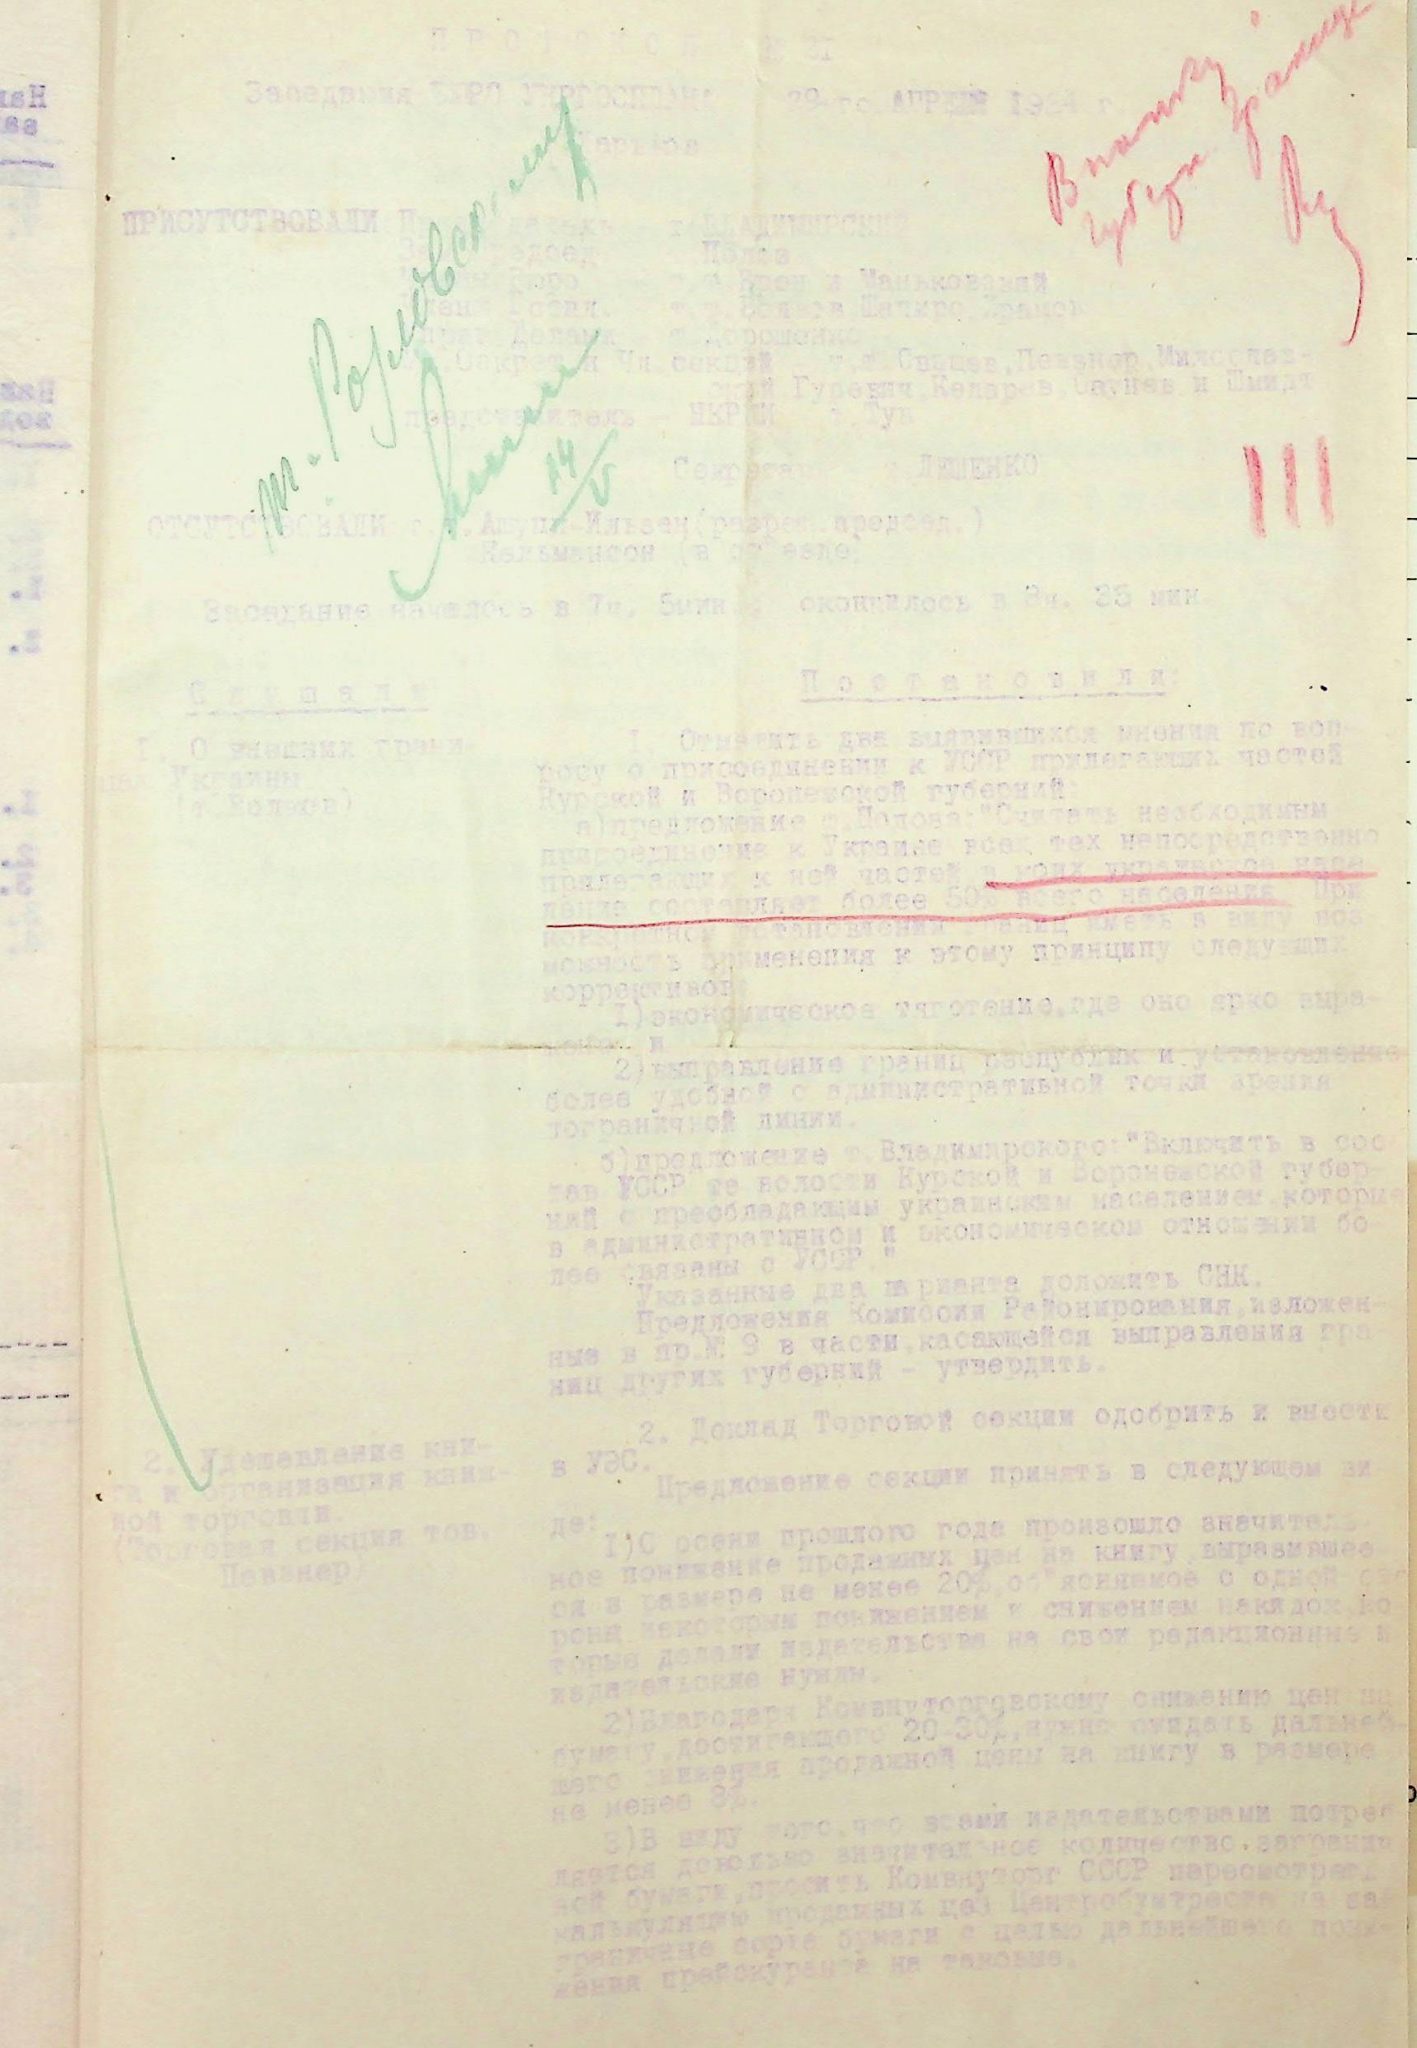 ПРОТОКОЛ № 21
Заседания БЮРО УКРГОСПЛАНА 29-го АПРЕЛЯ 1924 г.
Харьков
В папку
губерн. границ
т.
14/V
ПРИСУТСТВОВАЛИ Председатель – т. ВЛАДИМИРСКИЙ
Зам. Председ. Попов
Члены Бюро – т.т. Крон и Маньковский
Члены Госпл. – т.т. Шапиро
Управ. Делами – т. Дорошенко
Секрет. и Чл. секций – т.т. Певзнер, Милославский
Гуревич, Саунев и Шмидт
представитель – НКРКИ т. Тун
Секретарь – т. ЛЯШЕНКО
ОТСУТСТВОВАЛИ т.т. (разреш. председ.)
Кельмансон (в от'езде)
Заседание началось в 7ч. 5мин.; окончилось в 8ч. 35 мин.
Слушали Постановили:
I. О внешних грани-
цах Украины
I. Отметить два выявившихся мнения по воп-
росу о присоединении к УССР прилегающих частей
Курской и Воронежской губерний:
а)предложение т.Попова:"Считать необходимым
присоединение к Украине всех тех непосредственно
прилегающих к ней частей в коих украинское насе-
ление составляет более 50% всего населения. При
конкретном установлении границ иметь в виду воз-
можность применения к этому принципу следующих
коррективов:
1)экономическое тяготение,где оно ярко выра-
жено, и
2)выправление границ республик и установление
более удобной с административной точки зрения
пограничной линии.
б)предложение т.Владимирского:"Включить в сос-
тав УССР те волости Курской и Воронежской губер-
ний с преобладающим украинским населением,которые
в административном и экономическом отношении бо-
лее связаны с УССР."
Указанные два варианта доложить СНК.
Предложения Комиссии Районирования,изложен-
ные в пр.№ 9 в части,касающейся выправления гра-
ниц других губерний – утвердить.
2. Удешевление кни-
ги и организация книж-
ной торговли.
(Торговая секция тов.
Певзнер)
2. Доклад Торговой секции одобрить и внести
в УЭС.
Предложение секции принять в следующем ви-
де:
1)С осени прошлого года произошло значитель-
ное понижение продажных цен на книгу,выразившее-
ся в размере не менее 20%,об"ясняемое с одной сто-
роны некоторым понижением и снижением накидок,ко-
торые делали издательства на свои редакционные и
издательские нужды.
2)Благодаря Комвнуторговскому снижению цен на
бумагу,достигающего 20-30%,нужно ожидать дальней-
шего снижения продажной цены на книгу в размере
не менее 8%.
3)В виду того,что всеми издательствами потреб-
ляется довольно значительное количество заграни-
чной бумаги,просить Комвнуторг СССР пересмотреть
калькуляцию продажных цен Центробумтреста на за-
граничные сорта бумаги с целью дальнейшего пони-
жения прейскуранта на таковые.